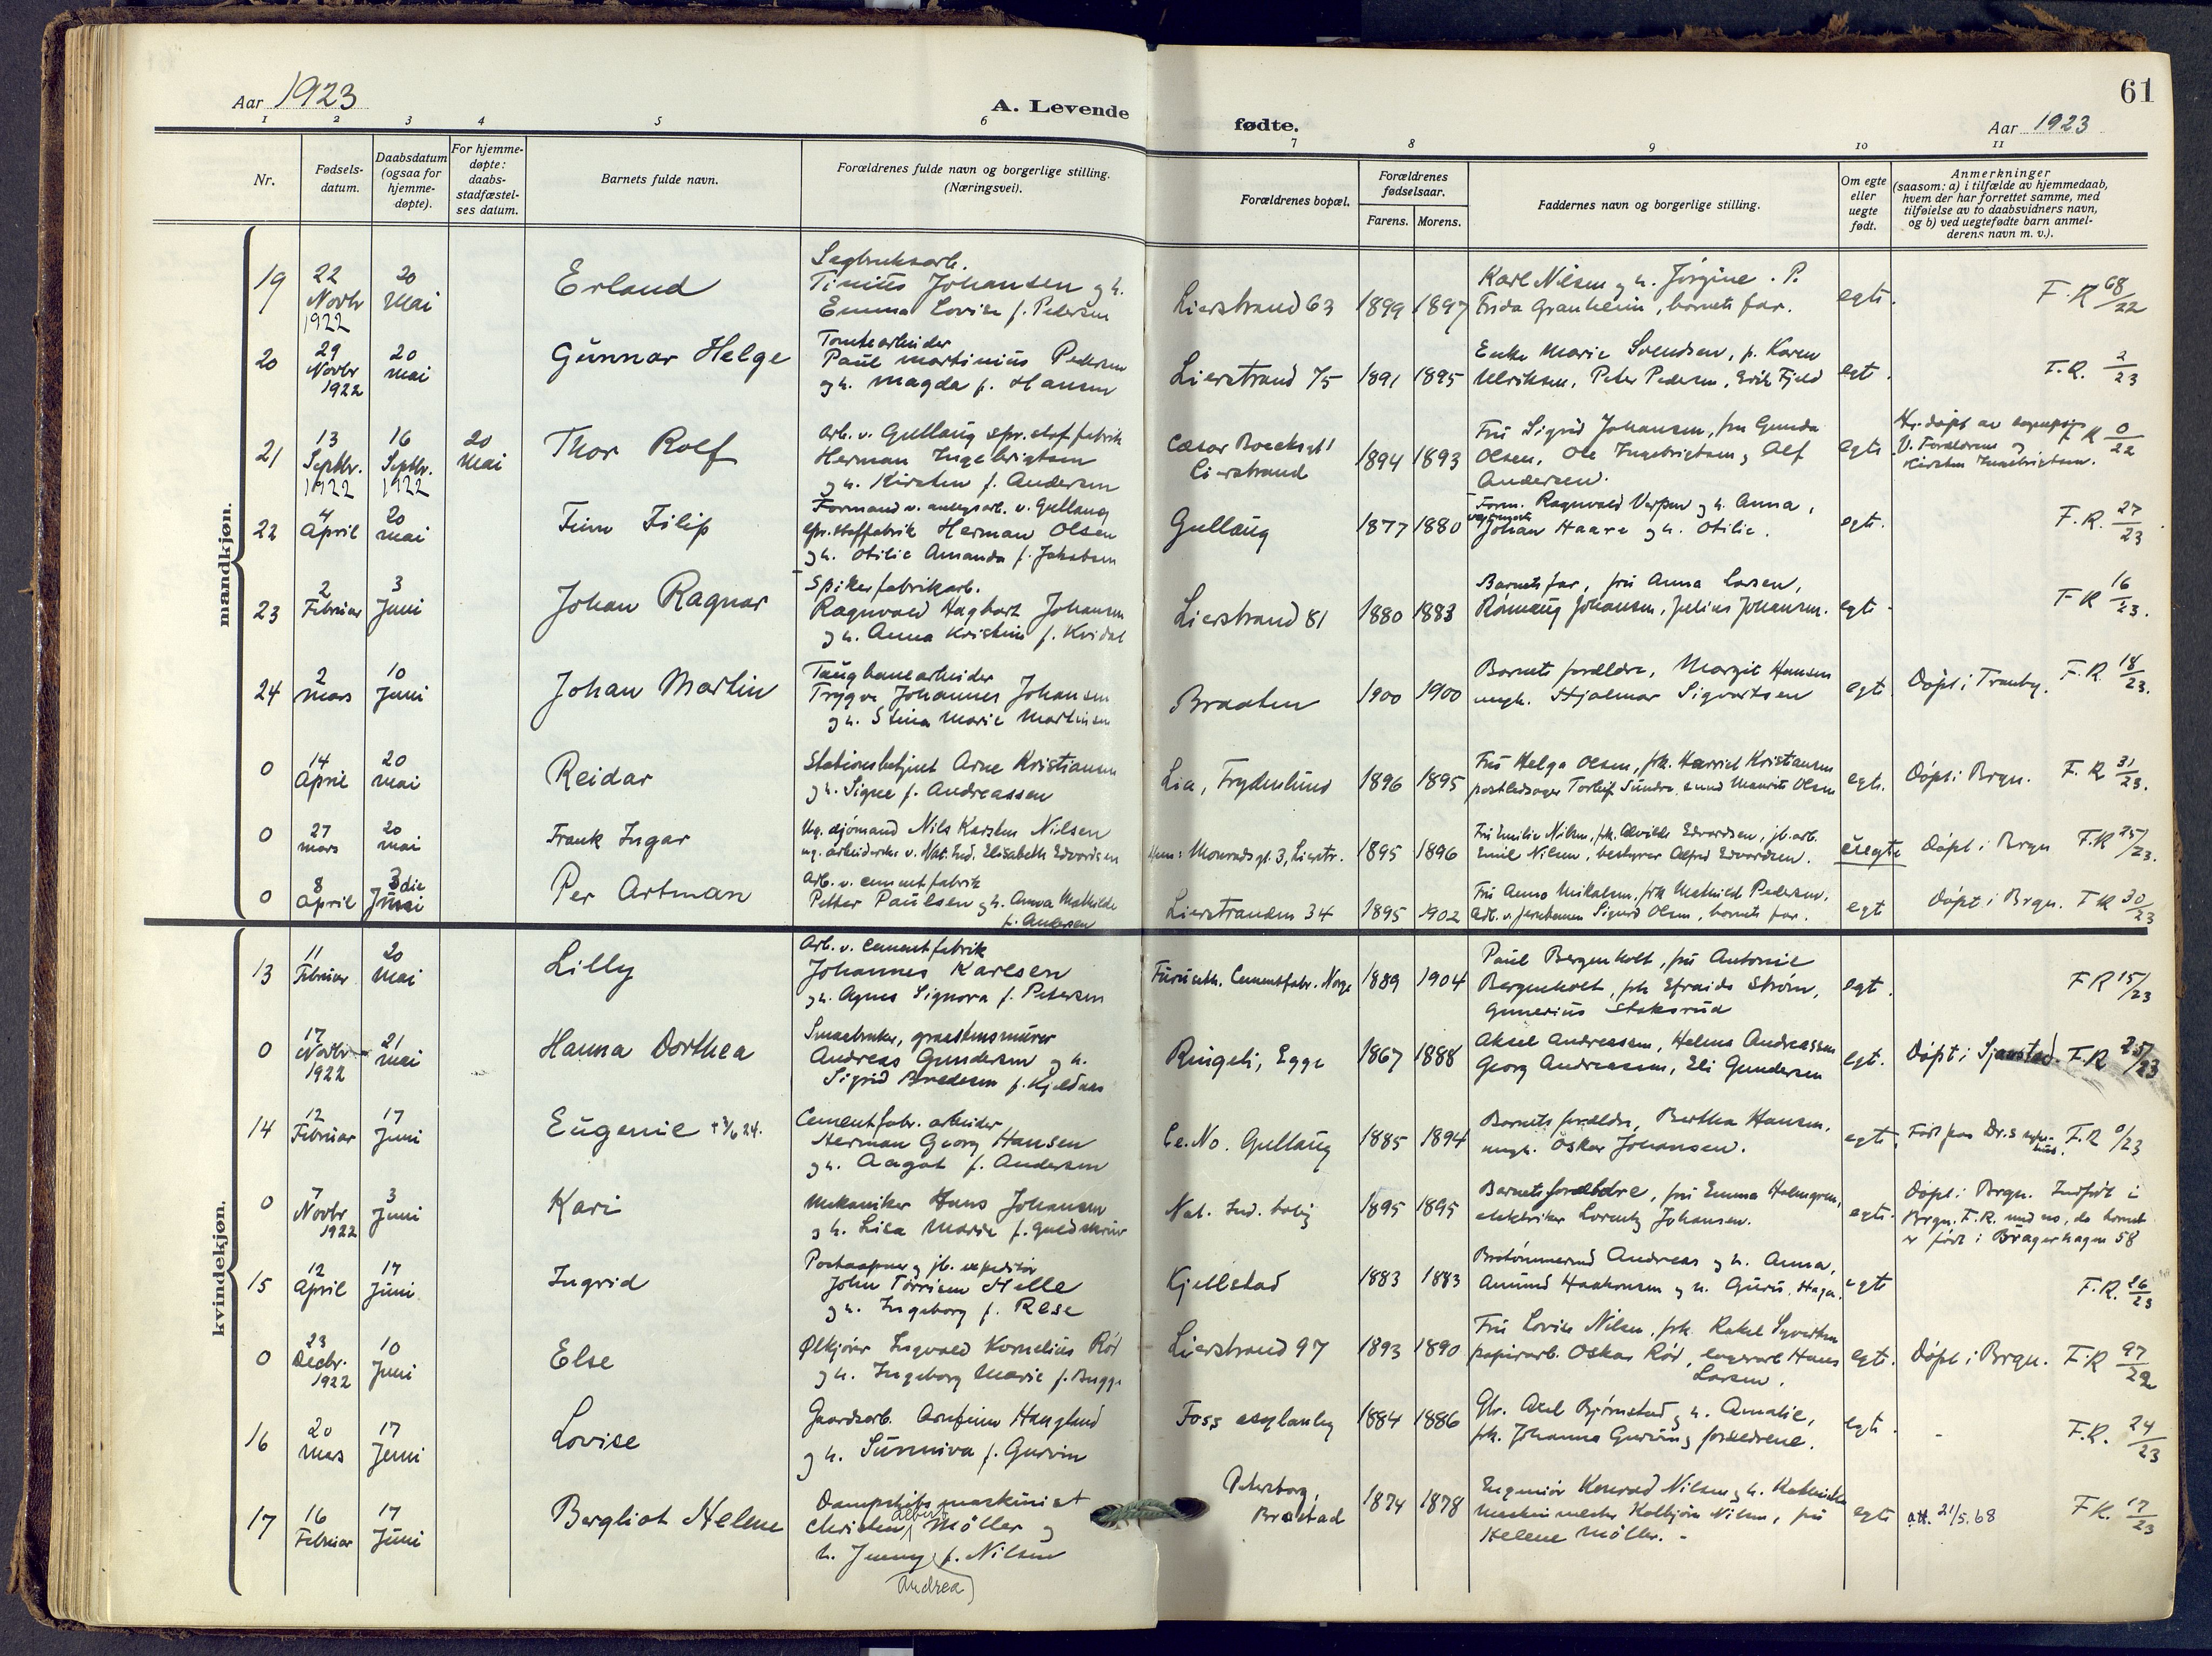 Aar 1923
A. Levende
fødte.
Aar 1923
61
1 2 3 4 5 6 7 8 9 10 11
Nr.
Fødsels-
datum.
Daabsdatum
(ogsaa for
hjemme-
døpte).
For hjemme-
døpte:
daabs-
stadfæstel-
ses datum.
Barnets fulde navn.
Forældrenes fulde navn og borgerlige stilling.
(Næringsvei).
Forældrenes bopæl.
Forældrenes
fødselsaar.
Farens. Morens.
Faddernes navn og borgerlige stilling.
Om egte
eller
uegte
født.
Anmerkninger
(saasom: a) i tilfælde av hjemmedaab,
hvem der har forrettet samme, med
tilføielse av to daabsvidners navn,
og b) ved uegtefødte barn anmel-
derens navn m. v.).
mandkjøn.
19
22
Novbr
1922
20
Mai
Erland
Sagbruksarb.
Johansen og h.
Emma Lovise f. Pedersen
Lierstrand 63
1899 1897
Karl Nilsen og h. Jørgine. P.
Frida Granheim, barnets far.
egte.
F. R 68/22
20
29
Novbr
1922
20
mai
Gunnar Helge
Tomtearbeider
Paul Martinius Pedersen
og h. Magda f. Hansen
Lierstrand 75
1891 1895
Enke Marie Svendsen, f. Karen
Ulriksen, Peter Pedersen, Erik Fjeld
egte.
F.R. 2/23
21
13
Septbr.
1922
16
Septbr.
1922
20
Mai
Thor Rolf
Arb. v. Gullaug spr.stof fabrik
Herman Ingebrigtsen
og h. Kirsten f. Andersen
Lierstrand
1894 1893
Fru Sigrid Johansen, fru Gunda
Olsen, Ole Ingebrigtsen, Alf
Andersen.
egte
Hj. døpt av
V. Forældrene og
Kirsten Ingebrigtsen.
R 0/22
22
4
April
20
mai
Finn Filip
Formand v. anlegsarb. v. Gullaug
spr.stoffabrik Herman Olsen
og h. Otilie Amanda f. Jakobsen
Gullaug
1877 1880
Form. Ragnvald Verpen og h. Anna,
Johan Haare og h. Otilie.
egte.
F.R. 27/23
23
2
Februar
3
Juni
Johan Ragnar
Spikerfabrikarb.
Ragnvald Hagbart Johansen
og h. Anna Kristine f. Kvidal
Lierstrand 81
1880 1883
Barnets far, fru Anna Larsen,
Rønnaug Johansen, Julius Johansen.
egte.
F R 16/23.
24
2
mars
10
Juni
Johan Martin
Taugbanearbeider
Trygve Johannes Johansen
og h. Stina Marie Martinsen
Braaten
1900 1900
Barnets forældre, Margit Hansen
ungk. Hjalmar Sigvartsen
egte.
Døpt i Tranby. F.R. 18/23.
0
14
April
20
mai
Reidar
Stationsbetjent Arne Kristiansen
og h. Signe f. Andreassen
Lia, Frydenlund
1896 1895
Fru Helga Olsen, frk. Harriet Kristiansen
postledsager Torleif Sundre, Maurits Olsen
egte.
Døpt i Brgn. F. R 31/23.
0
27
mars
20
mai
Frank Ingar
Ug. sjømand Nils Karsten Nilsen
ug. arbeiderske v. Nat. Ind. Elisabeth Edvardsen
Monradsgt. 3, Lierstr.
1895 1896
Fru Emilie Nilsen, frk. Alvilde Edvardsen, jb.arb.
Emil Nilsen, bestyrer Alfred Edvardsen.
uegte
Døpt i Brgn F.R 25/23.
0
8
April
3die
Juni
Per Artman
Arb. v. cementfabrik
Petter Paulsen og h. Anna Mathilde
f. Andersen
Lierstranden 34
1895 1902
Fru Anna Mikalsen, frk Mathild Pedersen,
Arb. v. jernbanen Sigurd Olsen, barnets far.
egte
Døpt i Brgn. F R 30/23
kvindekjøn.
13
11
Februar
20
Mai
Lilly
Arb. v. cementfabrik
Johannes Karlsen
og h. Agnes Signora f. Petersen
Furuseth. Cementfabr. Norge
1889 1904
Paul Bergenholt, fru Antonie
Bergenholt, frk Efraida Strøm,
Gunerius Staksrud
egte.
F R 15/23
0
17
Novbr
1922
21
mai
Hanna Dorthea
Smaabruker, graastensmurer
Andreas Gundersen og h.
Sigrid Bredesen f. Kjeldaas
Ringeli, Egge
1867 1888
Aksel Andreassen, Helma Andreassen
Georg Andreassen, Eli Gundersen
egte.
Døpt i Sjaastad. F.R 25/23
14
12
Februar
17
Juni
Eugenie + 3/6 24.
Cementfabr. arbeider
Herman Georg Hansen
og h. Aagot f. Andersen
Ce. No. Gullaug
1885 1894
Barnets forældre, Bertha Hansen,
ungk. Oskar Johansen.
egte.
Født paa Dr.s syke-
hus. F.R 0/23
0
7
Novbr
1922
3
Juni
Kari
Mekaniker Hans Johansen
og h. Lisa Marie f. Guldskrue
Nat. Ind. bolig
1895 1895
Barnets forældre, fru Emma Holmgren,
elektriker Lorentz Johansen.
egte.
Døpt i Brgn. Indført i
Brgn. F.R. under no, da barnet
er født i Bragernagen 58
15
12
April
17
Juni
Ingrid
Postaapner og jb. expeditør
John Torrisen Helle
og h. Ingeborg f. Rese
Kjellstad
1883 1883
Andreas og h. Anna,
Amund Haakonsen og h. Guru, Haga.
egte
F.R. 26/23
0
23
Decbr.
1922
10
Juni
Else
Ølkjører Ingvald Kornelius Rød
og h. Ingeborg Marie f. Bugge
Lierstrand 97
1893 1890
Fru Lovise Nilsen, frk. Rakel Syvertsen
papirarb. Oskar Rød, lagerarb Hans
Larsen.
egte.
Døpt i Brgn. F.R 97/22
16
20
mars
17
Juni
Lovise
Gaardsarb. Arnfinn Haugland
og h. Sunniva f. Gurvin
Foss asylanleg
1884 1886
Gbr. Axel Bjørnstad og h. Amalie,
frk. Johanna Gurvin og forældrene.
egte.
F.R. 24/23
17
16
Februar
17
Juni
Bergliot Helene
Dampskibsmaskinist
Christen Albert Møller og
h. Jenny f. Nilsen
Andrea
Petersborg,
Brastad
1874 1878
Ingeniør Konrad Nilsen og h. Kathinka
maskinmester Kolbjørn Nilsen, fru
Helene Møller. -
egte
att. 21/5.68 F R. 17/23